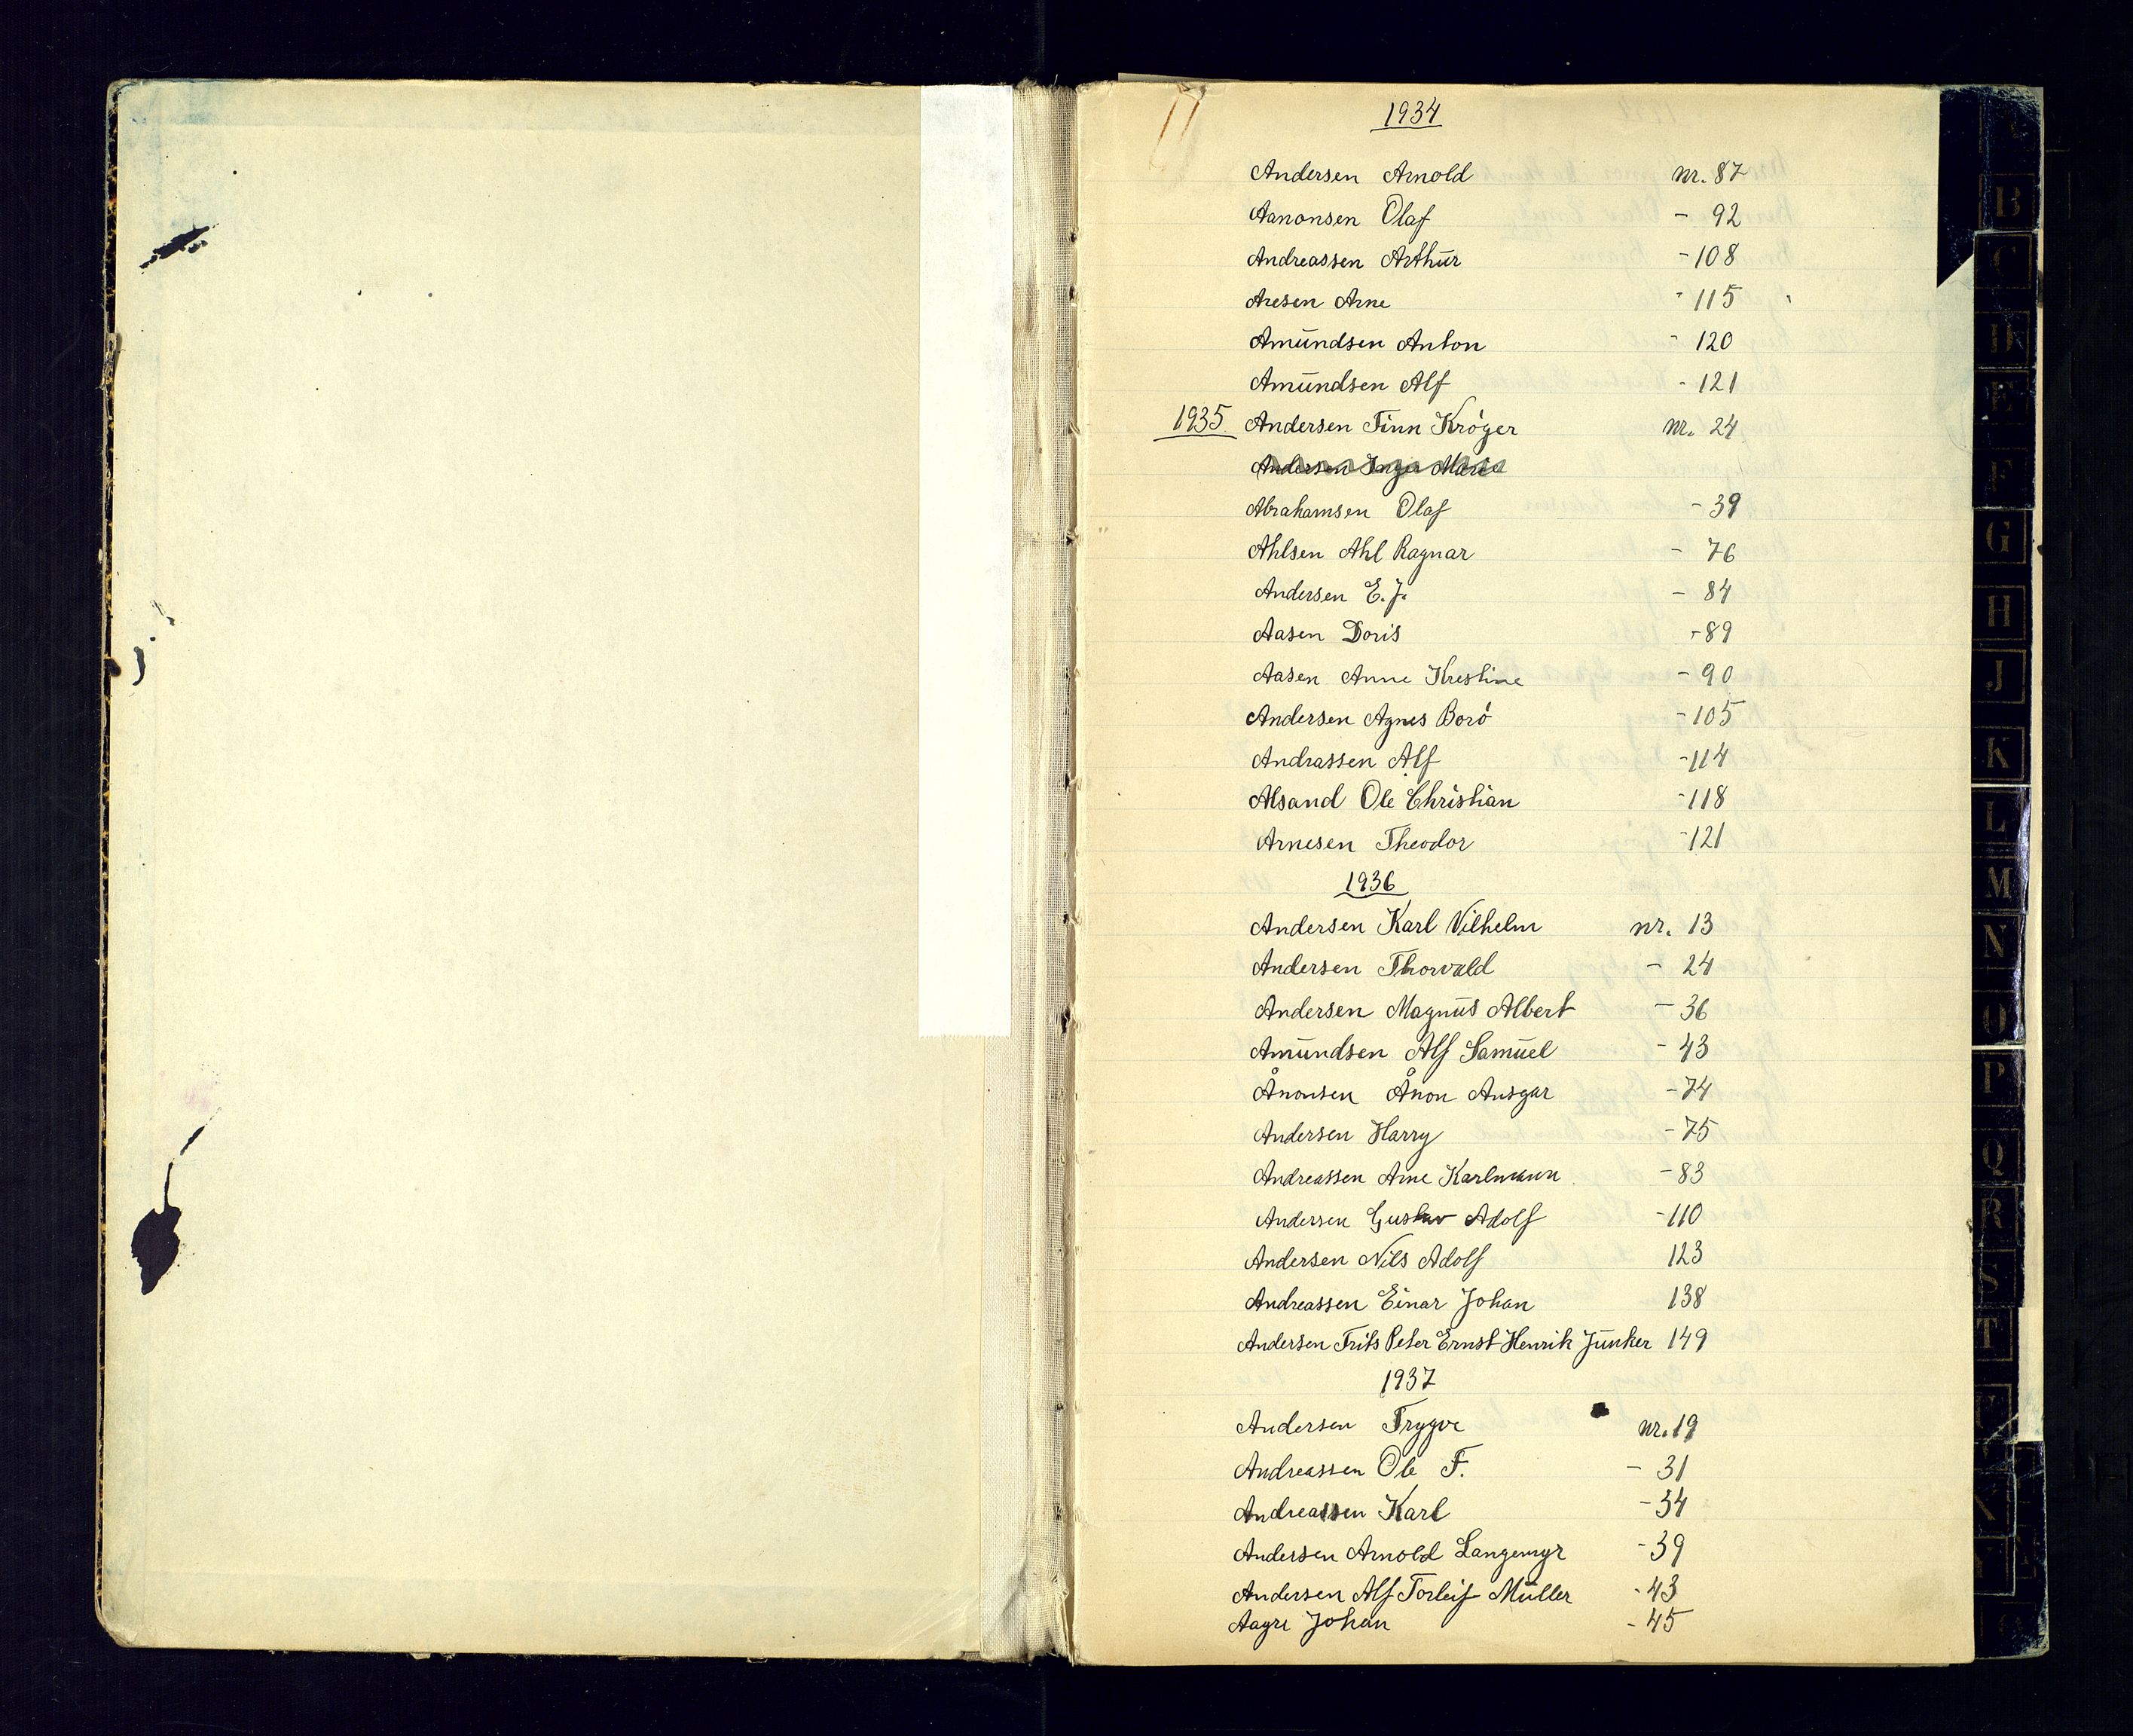 1934
Andersen Arnold nr. 87
Aanonsen Olaf - 92
Andreassen Arthur - 108
Aresen Arne - 115
Amundsen Anton - 120
Amundsen Alf - 121
1935. Andersen Finn Kröger nr. 24
Andersen Inger Marie
Abrahamsen Olaf - 39
Ahlsen Ahl Ragnar - 76
Andersen E. J. - 84
Aasen Doris - 89
Aasen Anne Krestine - 90
Andersen Agnes Borö - 105
Andrassen Alf - 114
Alsand Ole Christian - 118
Arnesen Theodor - 121
1936
Andersen Karl Vilhelm nr. 13
Andersen Thorvald - 24
Andersen Magnus Albert - 36
Amundsen Alf Samuel - 43
Ånonsen Ånon Ansgar - 74
Andersen Harry - 75
Andreassen Arne Karlmann - 83
Andersen Gustav Adolf - 110
Andersen Nils Adolf 123
Andreassen Einar Johan 138
Andersen Frits Peter Ernst Henrik Junker 149
1937
Andersen Trygve nr. 19
Andreassen Ole F. - 31
Andreassen Karl - 34
Andersen Arnold Langemyr - 39
Andersen Alf Torleif Müller - 43
Aagre Johan - 45
B
C
D
E
F
G
H
J
K
L
M
N
O
P
Q
R
S
T
U